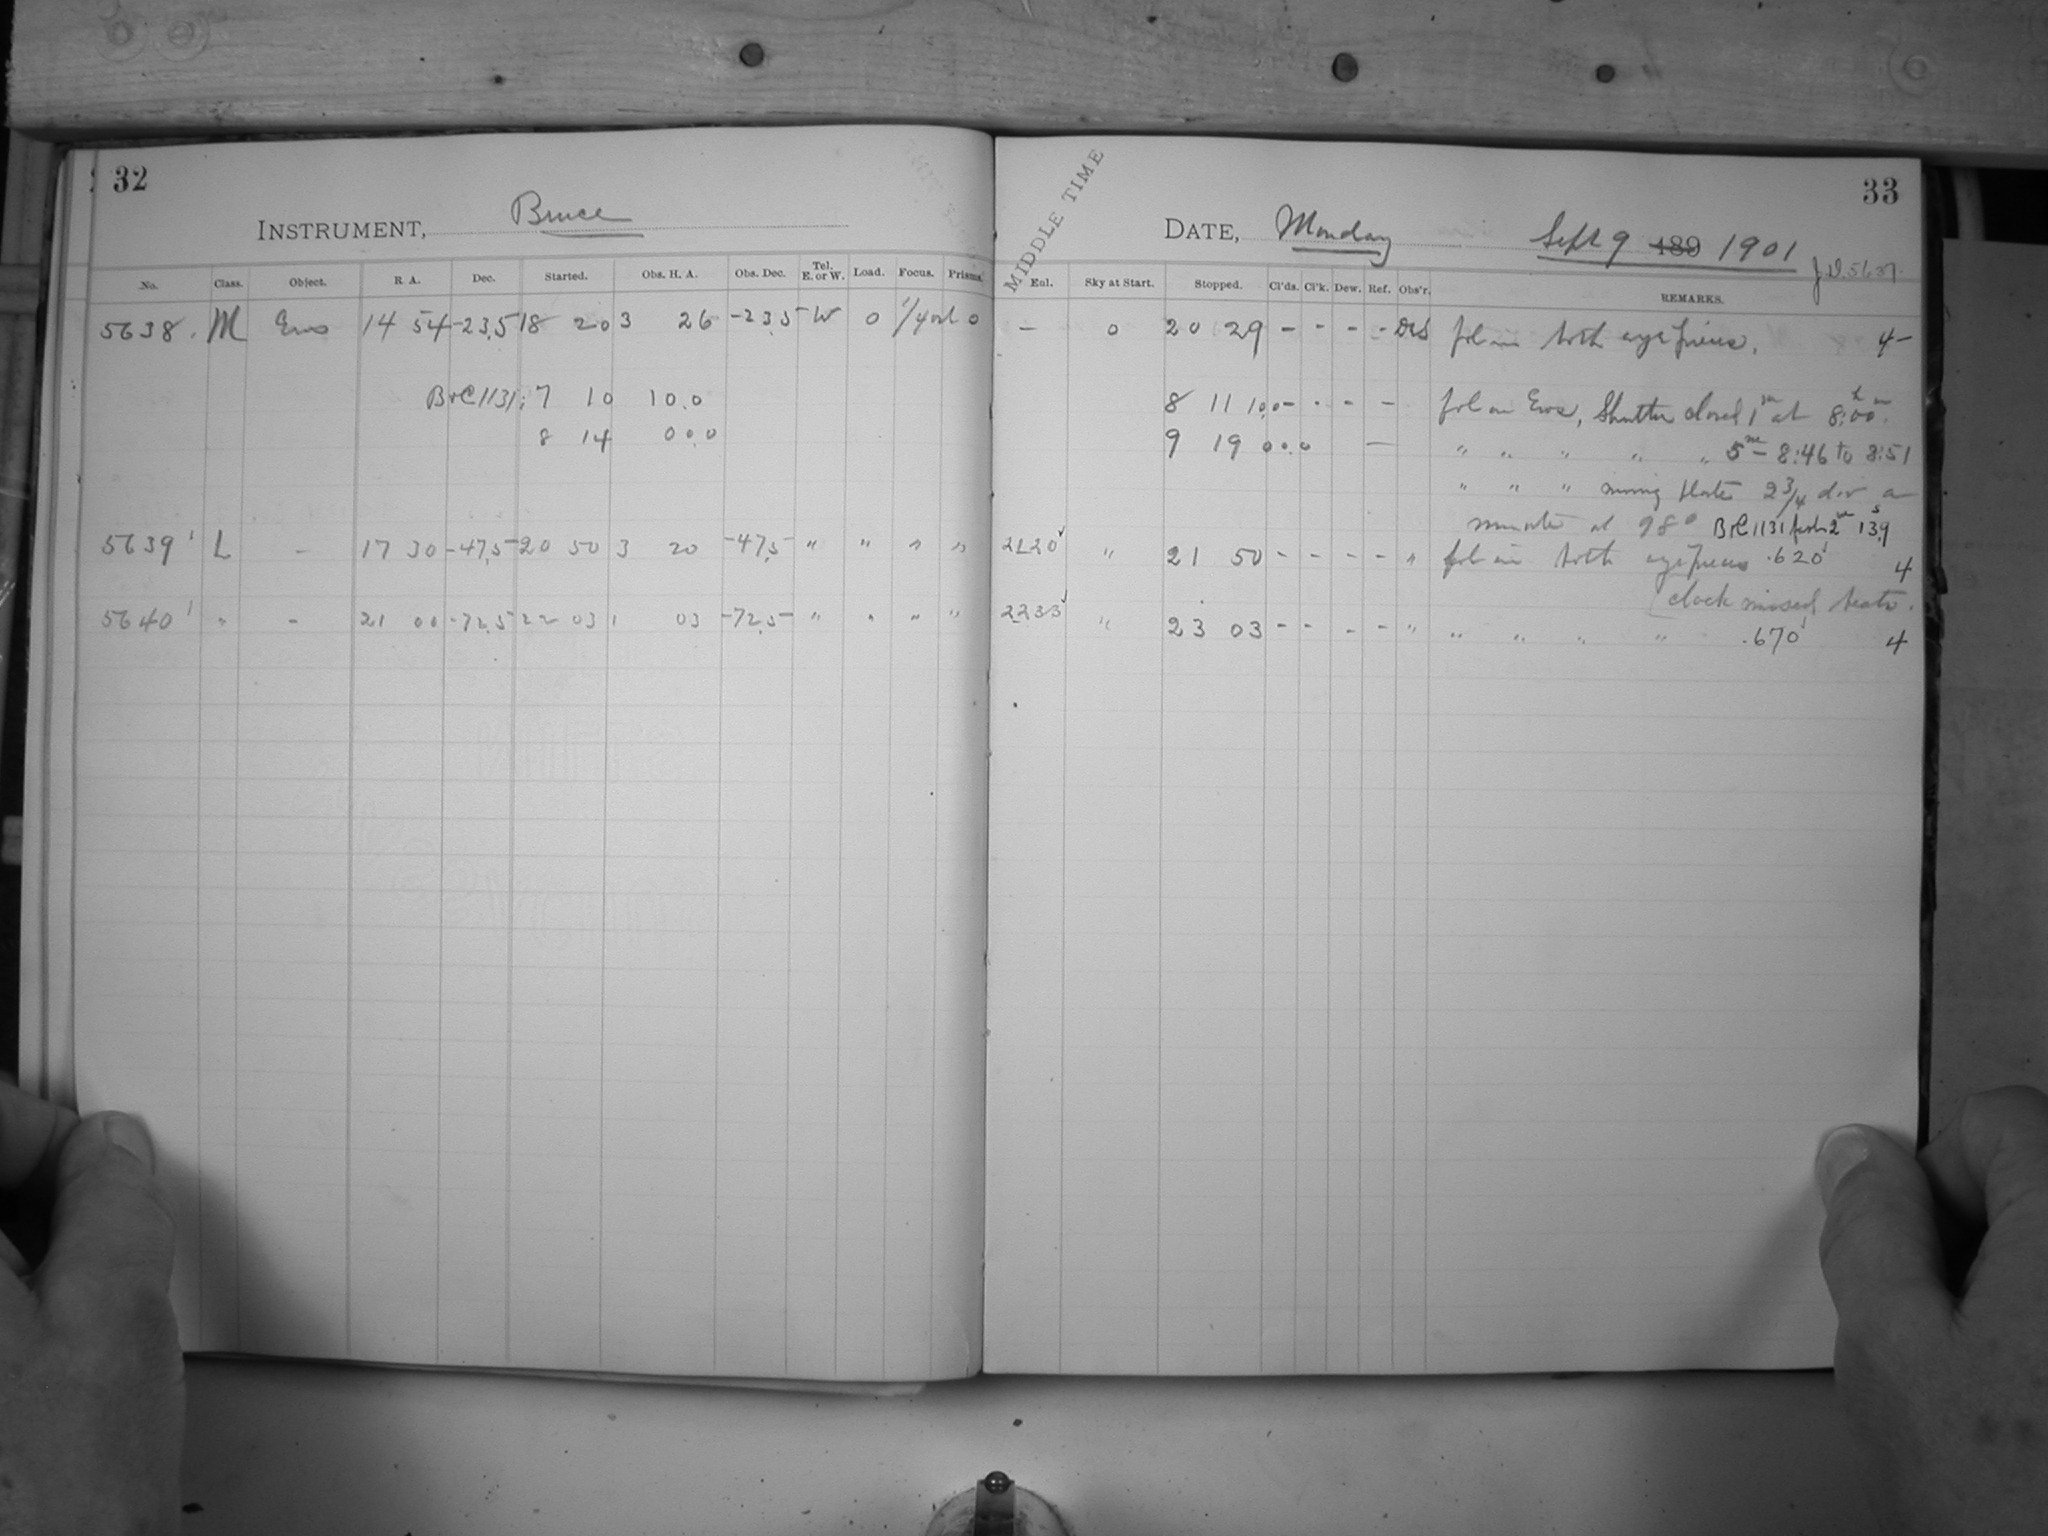 32
INSTRUMENT, Bruce
No. Class. Object. R A. Dec. Started. Obs. H. A. Obs. Dec. Tel. E. or W. Load. Focus. Prisms.
5638. M Eros 14 54 -23,5 18 20 3 26 -23,5 W 0 0
B&C 1131: 7 10 10.0
8 14 00.0
5639 L - 17 30 -47,5 20 50 3 20 -47,5 " " " "
5640 " - 21 00 -72,5 22 03 1 03 -72,5 " " " "
33
MIDDLE TIME
DATE, Monday Sept 9 189 1901
J.D. 5637
Eql. Sky at Start. Stopped. Cl'ds. Cl'k. Dew. Ref. Obs'r. REMARKS.
- 0 20 29 - - - - fol in both eye pieces. 4-
8 11 10.0 - - - - fol on Eros, Shutter closed 1m at 8h:00m.
9 19 00.0 - " " " " " 5m - 8:46 to 8:51
" " " moving plate 2 3/4 div a
minute at 98° B&C 1131 2m 13s.9
2120 " 21 50 - - - - " fol in both eye pieces .620 4
clock missed beats.
2233 " 23 03 - - - - " " " " " .670 4